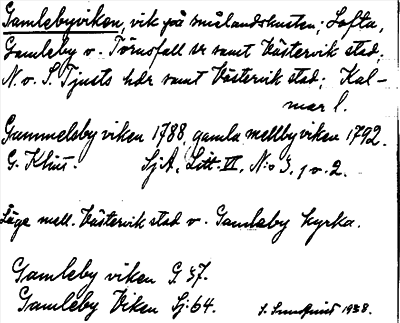 Gamlebyviken, vik på smålandskusten; Lofta,
Gamleby o. Törnsfall sr samt Västervik stad;
N. o. S. Tjusts hdr samt Västervik stad; Kal-
mar l.
Gammelsby viken 1788, gamla mellby viken 1792.
G. Klint. Sj A, Litt. VI, N:o 3, 1 o. 2.
Läge mell. Västervik stad o. Gamleby kyrka.
Gamleby viken G. 57.
Gamleby Viken Sj. 64. 1938.